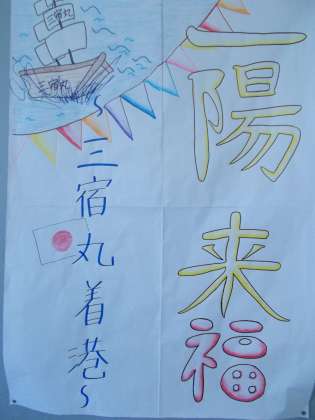 一陽来福
～三宿丸着港～
三宿丸
三宿丸